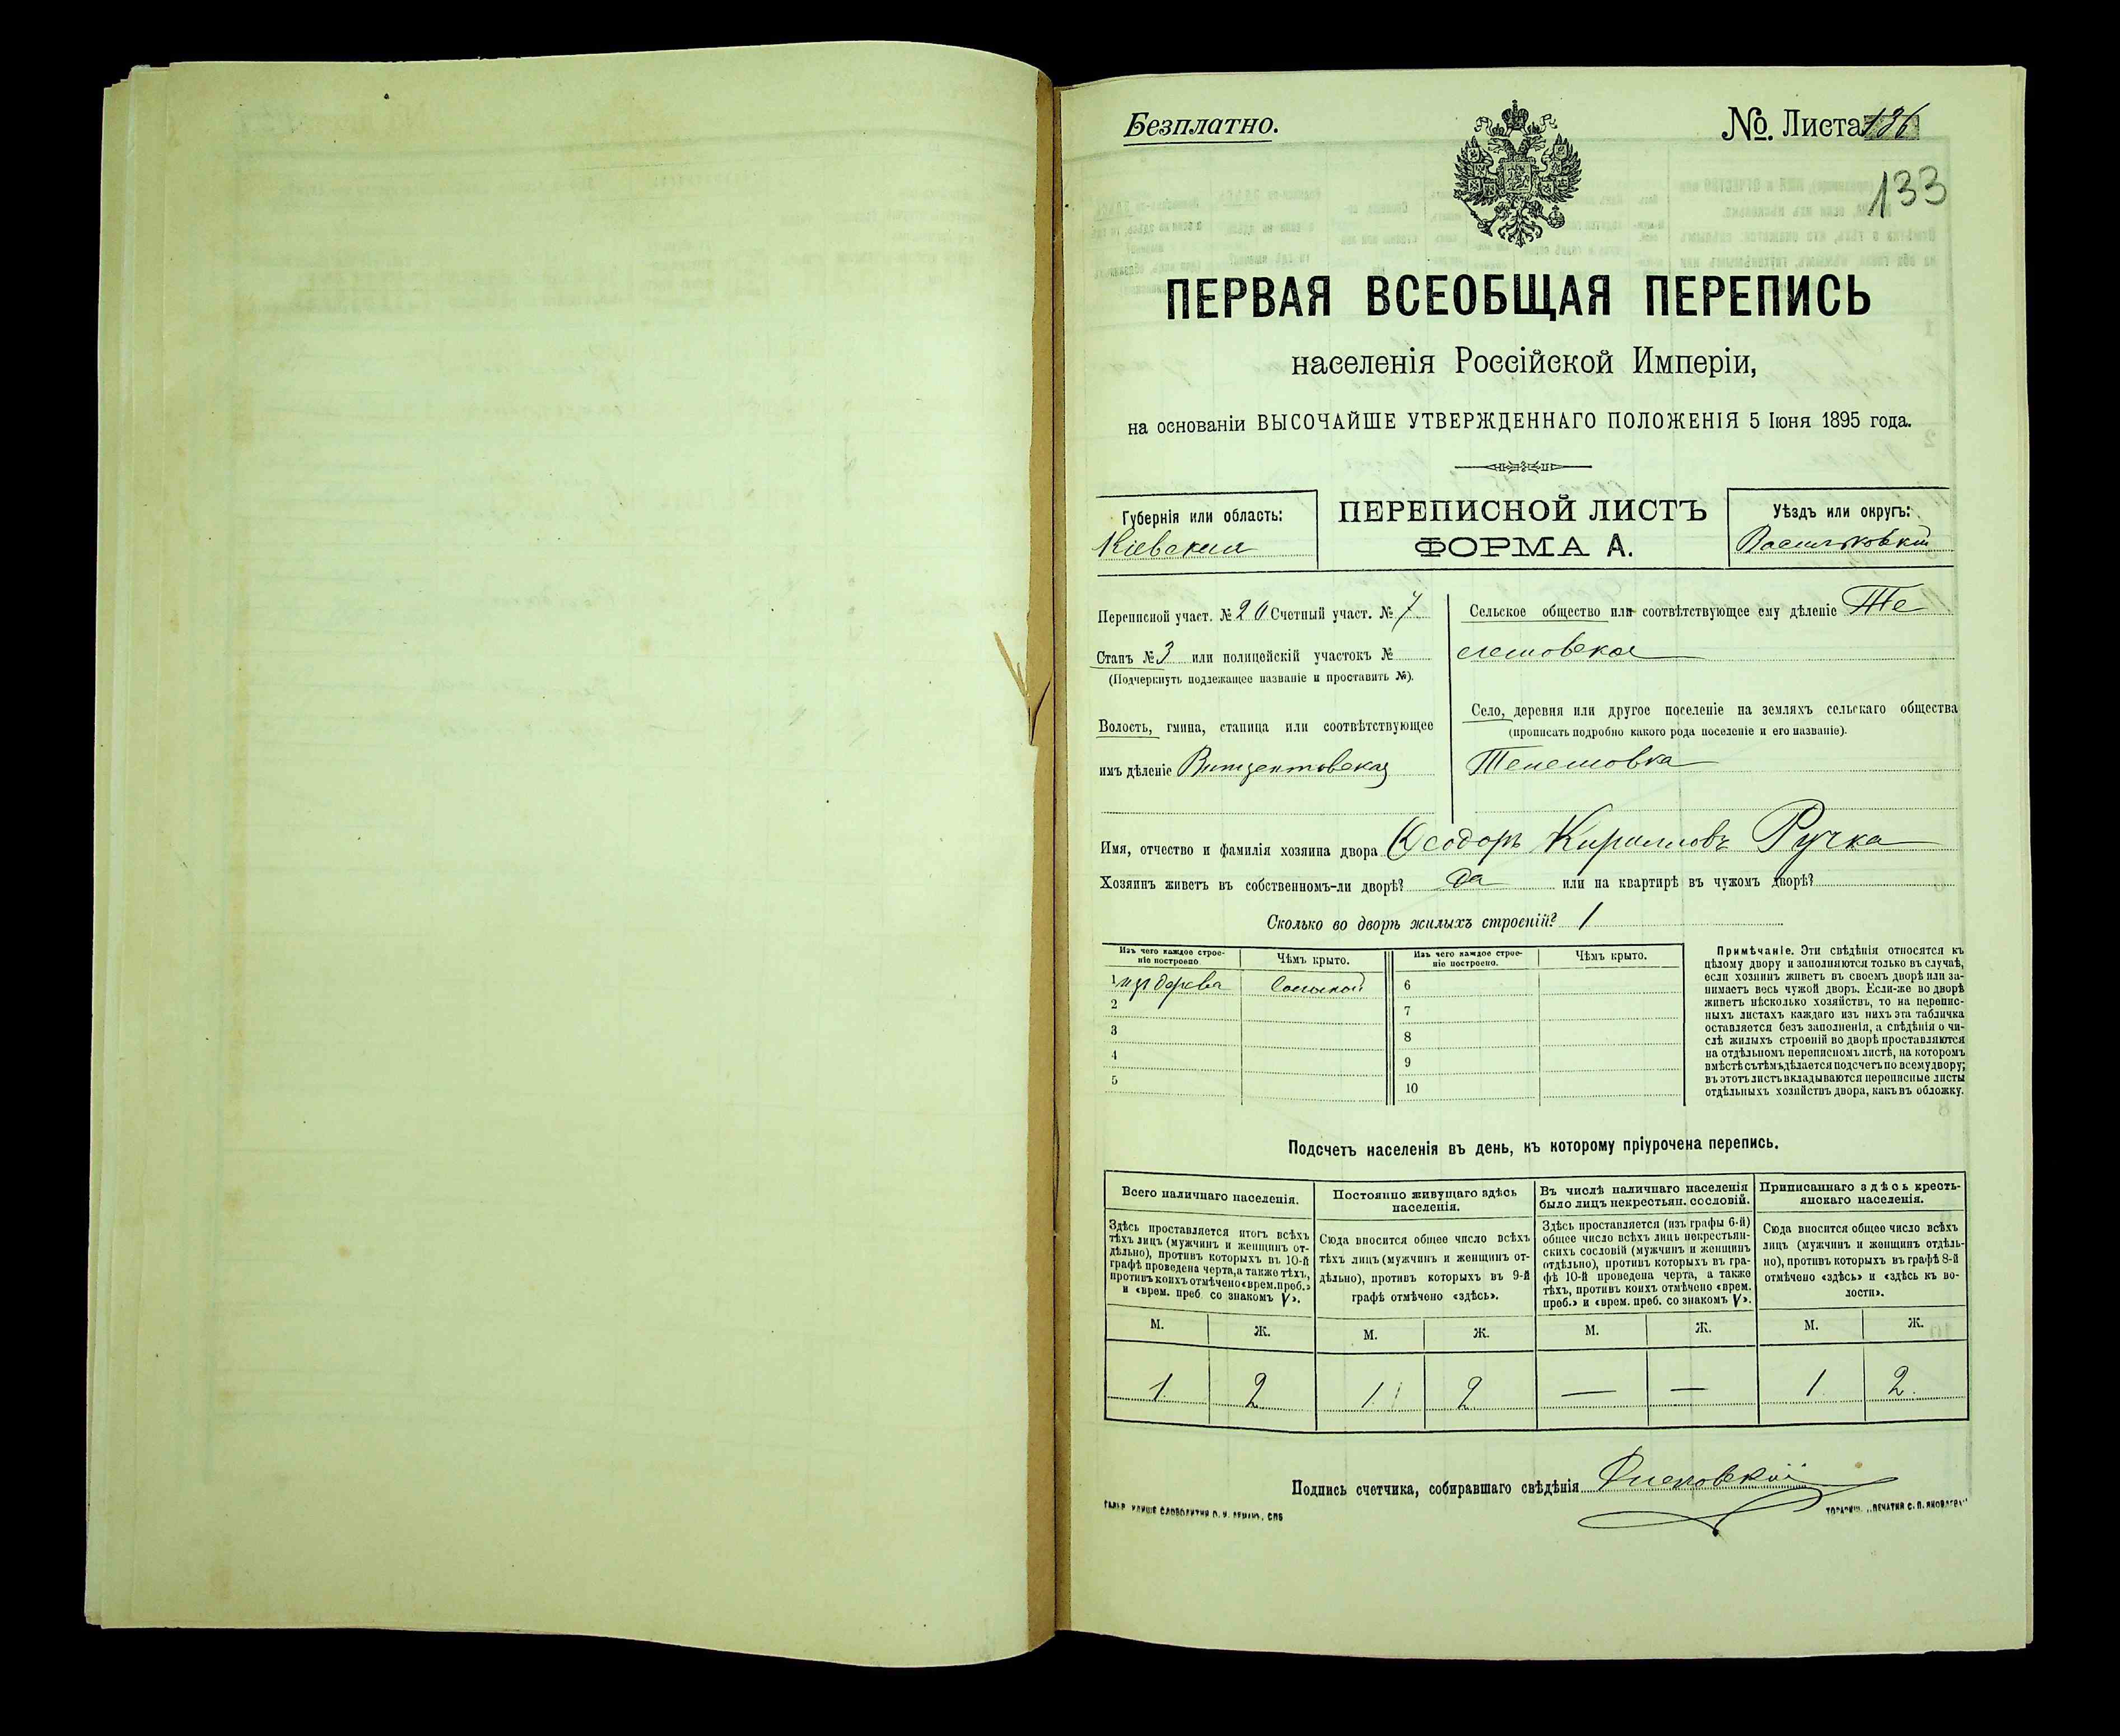 Безплатно.
№. Листа 136
133
ПЕРВАЯ ВСЕОБЩАЯ ПЕРЕПИСЬ
населенія Россійской Имперіи,
на основаніи ВЫСОЧАЙШЕ УТВЕРЖДЕННАГО ПОЛОЖЕНІЯ 5 Іюня 1895 года.
Губернія или область:
Кіевская
ПЕРЕПИСНОЙ ЛИСТЪ
ФОРМА А.
Уѣздъ или округъ:
Васильковскій
Переписной участ. № 20 Счетный участ. № 7
Станъ № 3 или полицейскій участокъ №
(Подчеркнуть подлежащее названіе и проставить №).
Волость, гмина, станица или соотвѣтствующее
имъ дѣленіе Винцентовская
Сельское общество или соотвѣтствующее ему дѣленіе Те
лешовское
Село, деревня или другое поселеніе на земляхъ сельскаго общества
(прописать подробно какого рода поселеніе и его названіе).
Телешовка
Имя, отчество и фамилія хозяина двора Ѳеодоръ Кирилловъ Ручка
Хозяинъ живетъ въ собственномъ-ли дворѣ? Да или на квартирѣ въ чужомъ дворѣ?
Сколько во дворѣ жилыхъ строеній? 1
Изъ чего каждое строе-
ніе построено.
Чѣмъ крыто.
Изъ чего каждое строе-
ніе построено.
Чѣмъ крыто.
1 изъ дерева Соломой 6
2 7
3 8
4 9
5 10
Примѣчаніе. Эти свѣдѣнія относятся къ
цѣлому двору и заполняются только въ случаѣ,
если хозяинъ живетъ въ своемъ дворѣ или за-
нимаетъ весь чужой дворъ. Если-же во дворѣ
живетъ нѣсколько хозяйствъ, то на перепис-
ныхъ листахъ каждаго изъ нихъ эта табличка
оставляется безъ заполненія, а свѣдѣнія о чи-
слѣ жилыхъ строеній во дворѣ проставляются
на отдѣльномъ переписномъ листѣ, на которомъ
вмѣстѣ съ тѣмъ дѣлается подсчетъ по всему двору;
въ этотъ листъ вкладываются переписные листы
отдѣльныхъ хозяйствъ двора, какъ въ обложку.
Подсчетъ населенія въ день, къ которому пріурочена перепись.
Всего наличнаго населенія.
Здѣсь проставляется итогъ всѣхъ
тѣхъ лицъ (мужчинъ и женщинъ от-
дѣльно), противъ которыхъ въ 10-й
графѣ проведена черта, а также тѣхъ,
противъ коихъ отмѣчено «врем. преб.»
и «врем. преб. со знакомъ V».
Постоянно живущаго здѣсь
населенія.
Сюда вносится общее число всѣхъ
тѣхъ лицъ (мужчинъ и женщинъ от-
дѣльно), противъ которыхъ въ 9-й
графѣ отмѣчено «здѣсь».
Въ числѣ наличнаго населенія
было лицъ некрестьян. сословій.
Здѣсь проставляется (изъ графы 6-й)
общее число всѣхъ лицъ некрестьян-
скихъ сословій (мужчинъ и женщинъ
отдѣльно), противъ которыхъ въ гра-
фѣ 10-й проведена черта, а также
тѣхъ, противъ коихъ отмѣчено «врем.
преб.» и «врем. преб. со знакомъ V».
Приписаннаго здѣсь кресть-
янскаго населенія.
Сюда вносится общее число всѣхъ
лицъ (мужчинъ и женщинъ отдѣль-
но), противъ которыхъ въ графѣ 8-й
отмѣчено «здѣсь» и «здѣсь къ во-
лости».
М. Ж. М. Ж. М. Ж. М. Ж.
1 2 1 2 — — 1 2
Подпись счетчика, собиравшаго свѣдѣнія